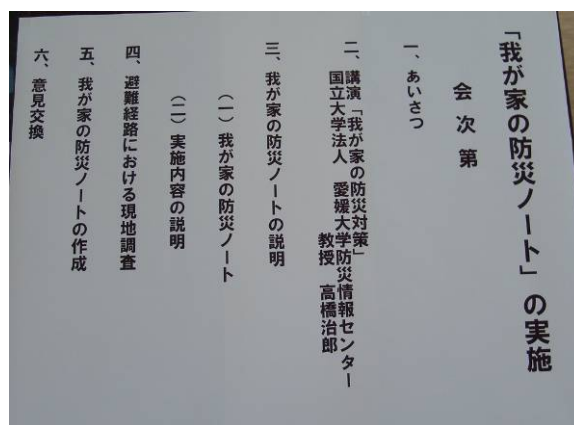 「我が家の防災ノート」の実施
会次第
一、あいさつ
二、講演「我が家の防災対策」
国立大学法人 愛媛大学防災情報センター
教授 高橋治郎
三、我が家の防災ノートの説明
(一)我が家の防災ノート
(二)実施内容の説明
四、避難経路における現地調査
五、我が家の防災ノートの作成
六、意見交換